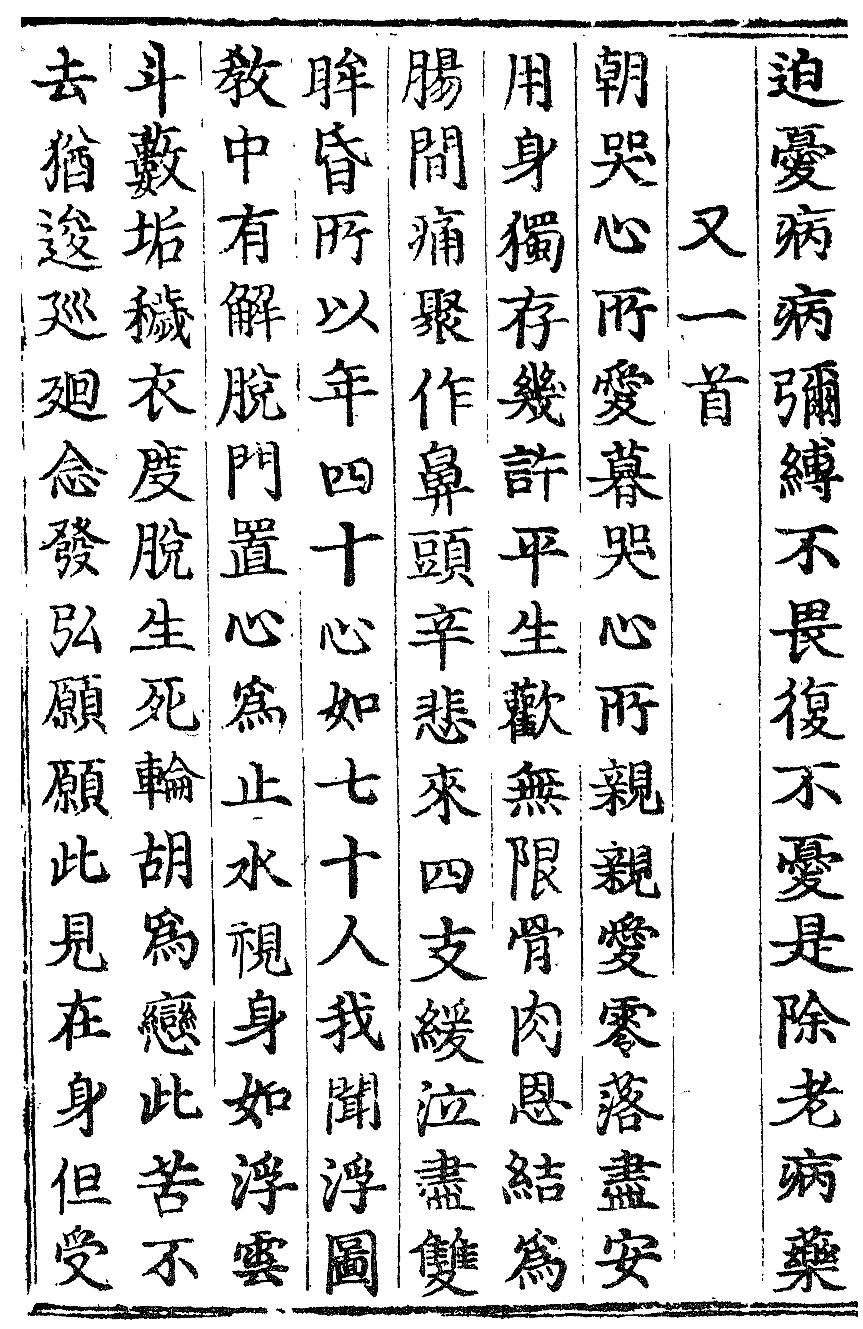 迫憂病病彌縛不畏復不憂是除老病藥
又一首
朝哭心所愛暮哭心所親親愛零落盡安
用身獨存幾許平生歡無限骨肉恩結為
腸間痛聚作鼻頭辛悲來四支緩泣盡雙
眸昏所以年四十心如七十人我聞浮圖
教中有解脫門置心為止水視身如浮雲
斗藪垢穢衣度脫生死輪胡為戀此苦不
去猶逡廵廻念發弘願願此見在身但受